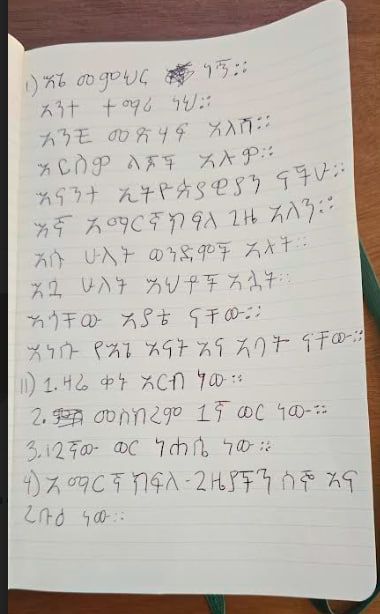 1) እኔ መምህር ነኝ።
አንተ ተማሪ ነህ።
አንቺ መጽሃፍ አለሽ።
እርስዎ ልጆች አሉዎ።
እናንተ ኢትዮጵያዊያን ናችሁ።
እኛ አማርኛ ክፍለ ጊዜ አለን።
እሱ ሁለት ወንድሞች አሉት።
እሷ ሁለት እህቶች አሏት።
እሳቸው አያቴ ናቸው።
እነሱ የእኔ እናት እና አባት ናቸው።
11) 1. ዛሬ ቀኑ አርብ ነው።
2. መስከረም 1ኛ ወር ነው።
3. 12ኛው ወር ነሐሴ ነው።
4) አማርኛ ክፍለ-ጊዜያችን ሰኞ እና
ረቡዕ ነው።